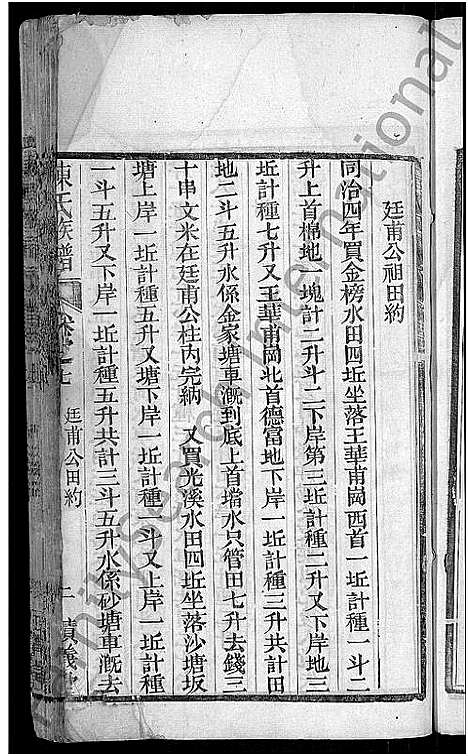 廷甫公祖田約
同治四年買金榜水田四坵坐落王華甫崗西首一坵計種一斗二
升上首棉地一塊計二升斗二下岸第三坵計種二升又下岸地三
坵計種七升又王華甫崗北首德富地下岸一坵計種三升共計田
地二斗五升水係金家塘車溉到底上首壋水只管田七升去錢三
十串文米在廷甫公柱內完納 又買光溪水田四坵坐落沙塘坂
塘上岸一坵計種五升又塘下岸一坵計種一斗又上岸一坵計種
一斗五升又下岸一坵計種五升共計三斗五升水係砂塘車溉去
陳氏族譜 卷之七 廷甫公田約 二 積義堂
International